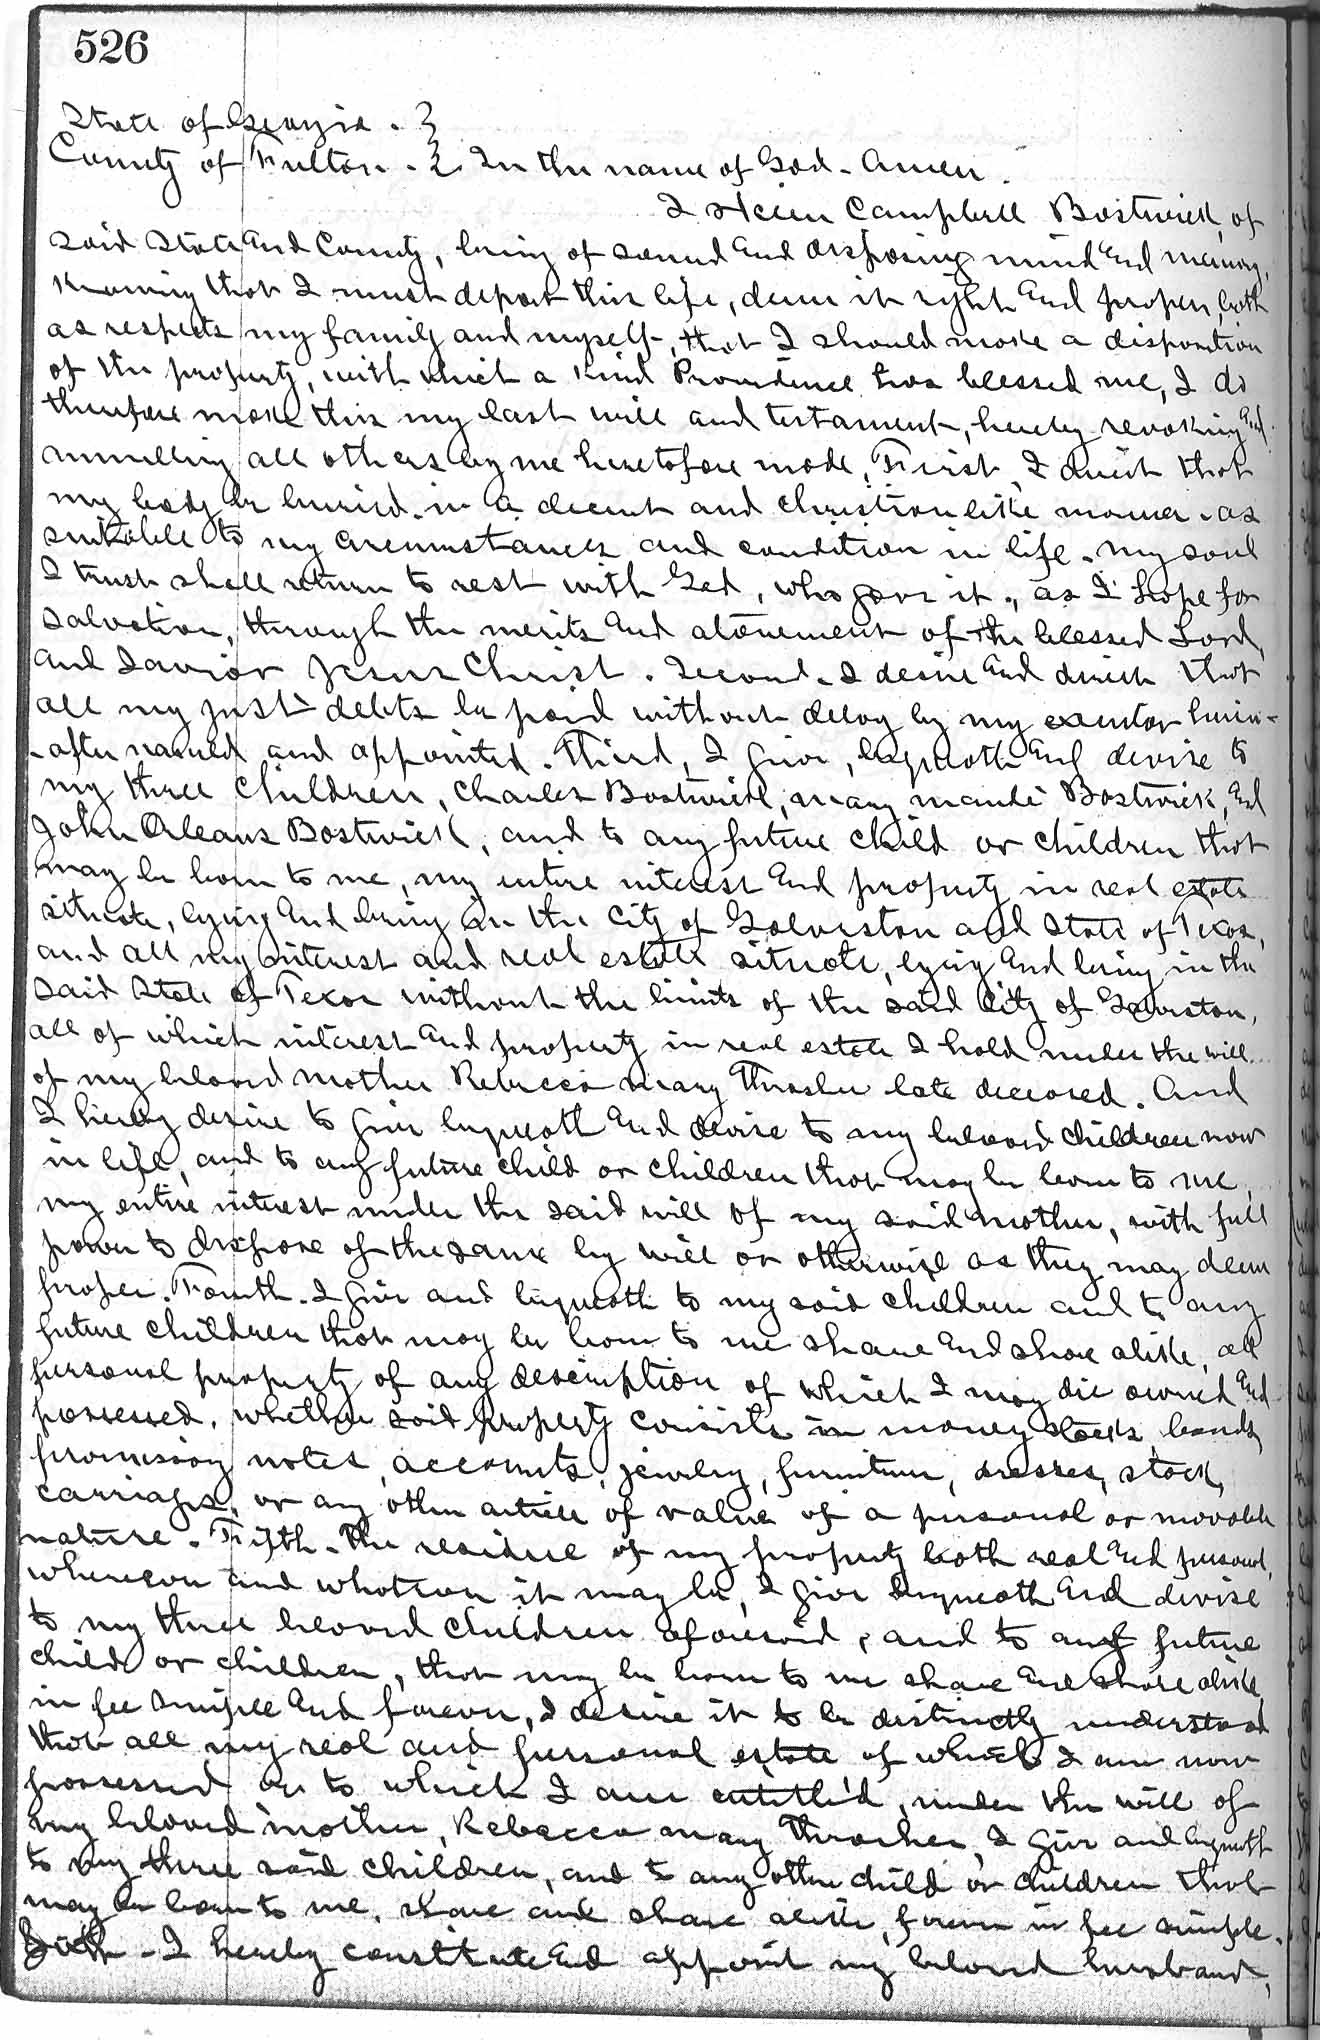 526
State of Georgia. }
County of Fulton. } In the name of God. Amen.
I Helen Campbell Bostwick, of
said State and County, being of sound and disposing mind and memory,
knowing that I must depart this life, deem it right and proper, both
as respects my family and myself, that I should make a disposition
of the property, with which a kind Providence has blessed me, I do
therefore make this my last will and testament, hereby revoking and
annulling all others by me heretofore made, First, I direct that
my body be buried in a decent and christian like manner. as
suitable to my circumstances and condition in life. my soul
I trust shall return to rest with God, who gave it, as I hope for
salvation, through the merits and atonement of the blessed Lord,
and Savior Jesus Christ. Second. I desire and direct that
all my just debts be paid without delay by my executor herein-
-after named and appointed. Third, I give, bequeath and devise to
my three children, Charles Bostwick, Mary Maude Bostwick, and
John Orleans Bostwick, and to any future child or children that
may be born to me, my entire interest and property in real estate
situate, lying and being in the City of Galveston and State of Texas,
and all my interest and real estate situate, lying and being in the
said State of Texas without the limits of the said City of Galveston,
all of which interest and property in real estate I hold under the will
of my beloved mother Rebecca Mary Thrasher late deceased. And
I hereby desire to give bequeath and devise to my beloved children now
in life, and to any future child or children that may be born to me,
my entire interest under the said will of my said mother, with full
power to dispose of the same by will or otherwise as they may deem
proper. Fourth. I give and bequeath to my said children and to any
future children that may be born to me share and share alike, all
personal property of any description of which I may die owned and
possessed, whether said property consists in money stocks, bonds,
promissory notes, accounts, jewelry, furniture, dresses, stock,
carriages, or any other article of value of a personal or movable
nature. Fifth. The residue of my property both real and personal,
wherever and whatever it may be, I give bequeath and devise
to my three beloved children aforesaid, and to any future
child or children, that may be born to me share and share alike,
in fee simple and forever, I desire it to be distinctly understood
that all my real and personal estate of which I am now
possessed or to which I am entitled, under the will of
my beloved mother, Rebecca Mary Thrasher, I give and bequeath
to my three said children, and to any other child or children that
may be born to me, share and share alike, forever in fee simple.
Sixth - I hereby constitute and appoint my beloved husband,